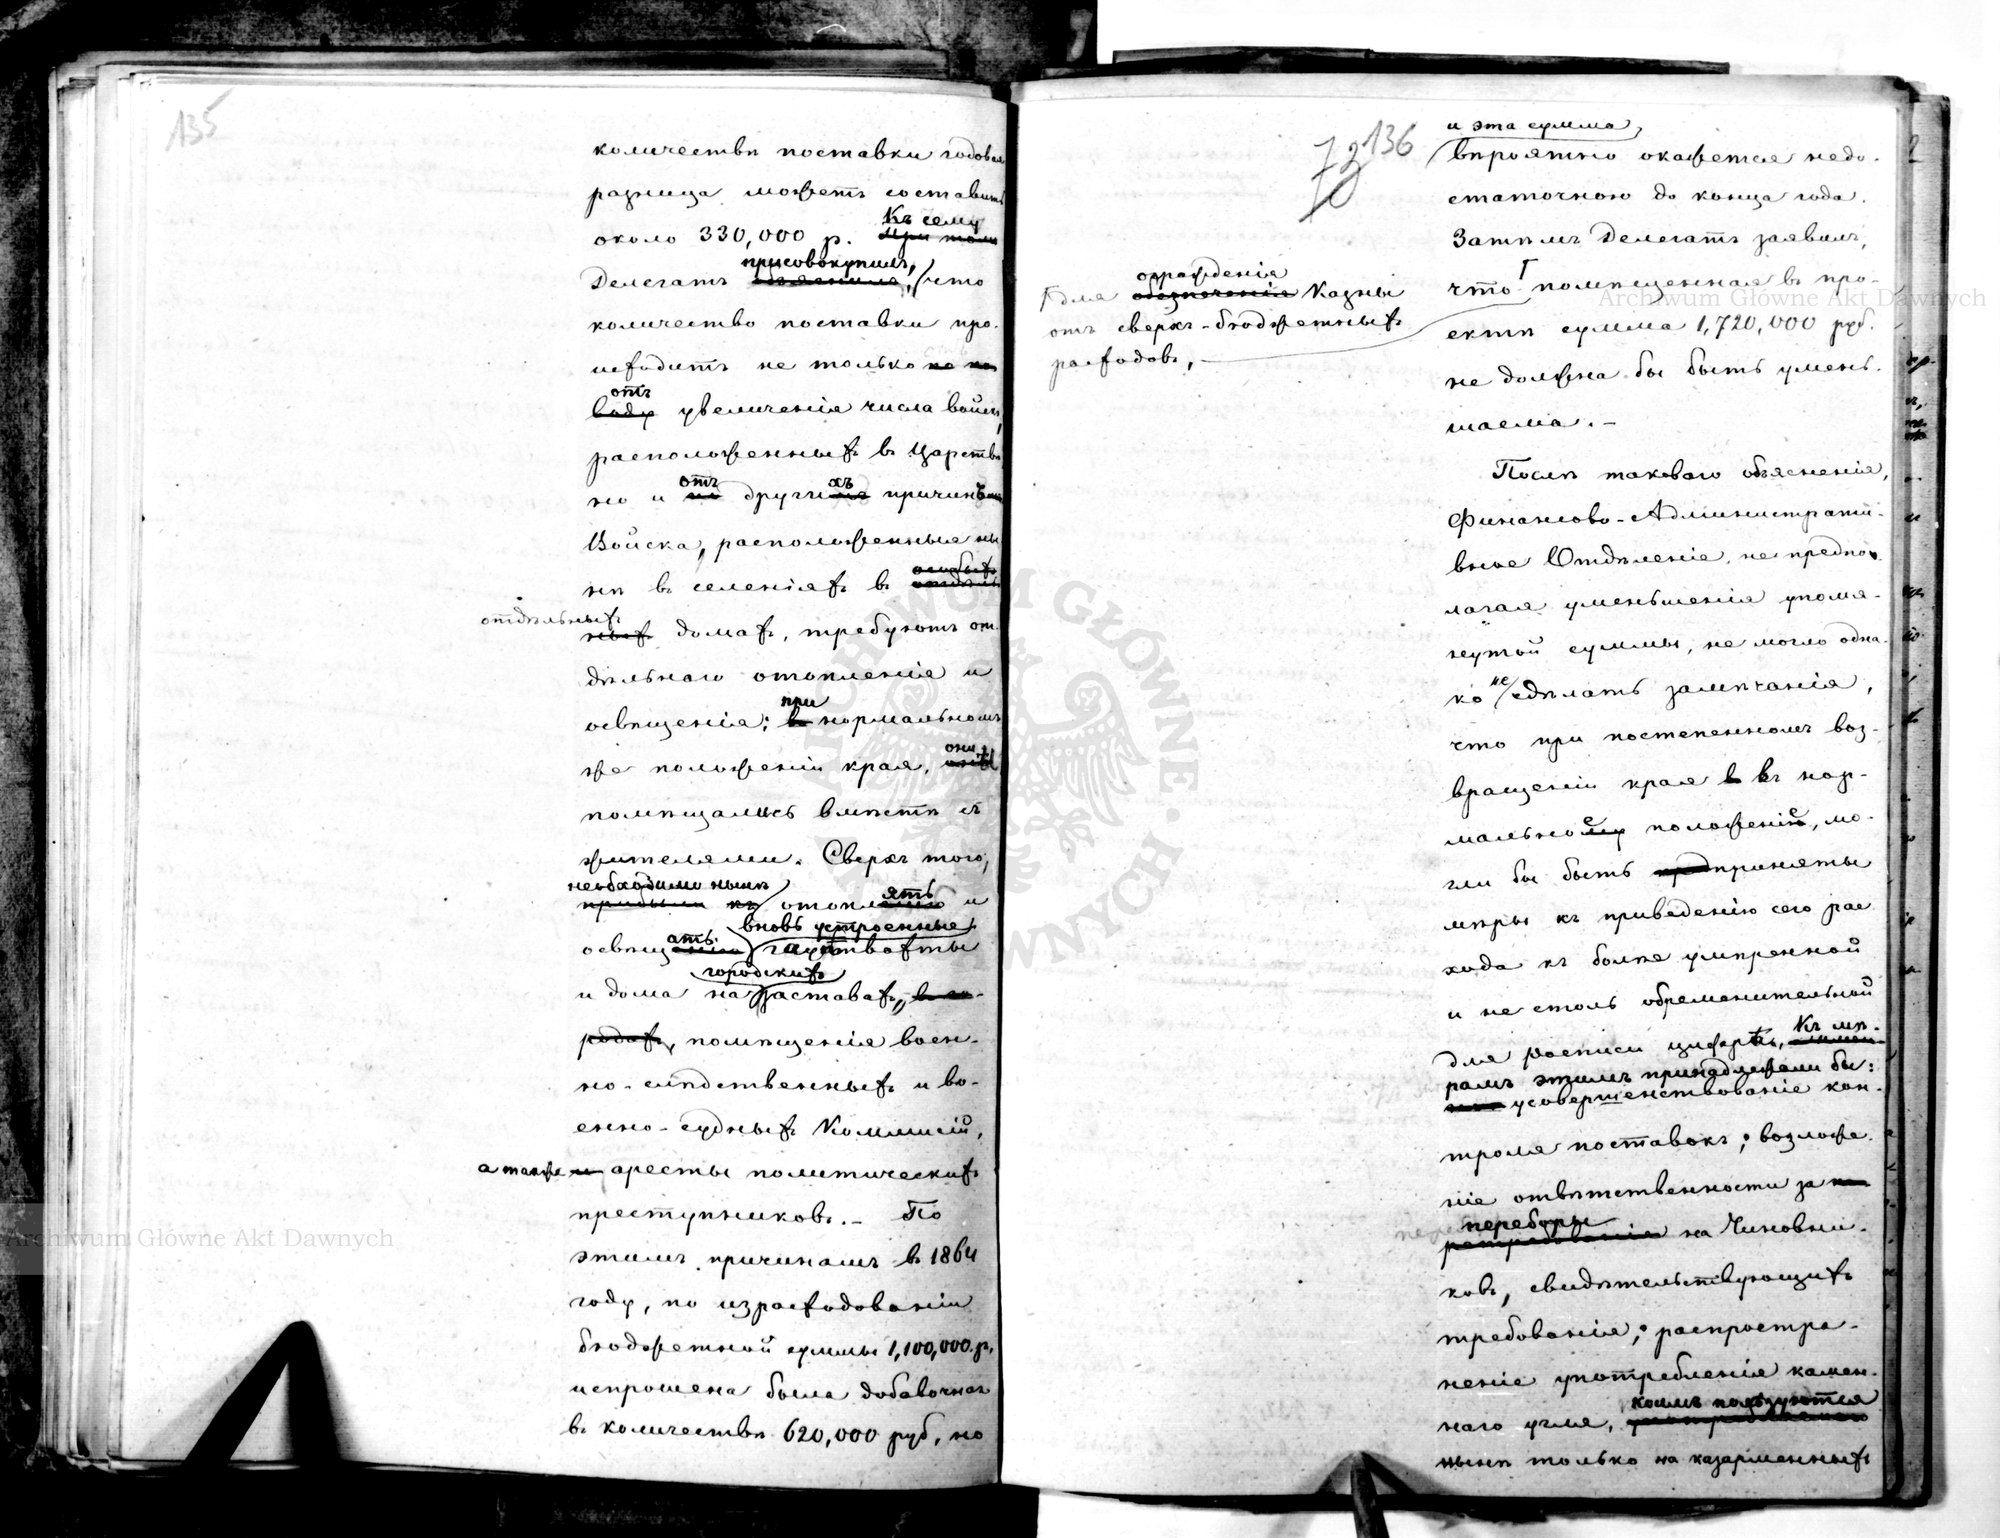 135
количествѣ поставки годовая
разница можетъ составить
Къ сему
около 330,000 р. При томъ
присовокупилъ,
Делегатъ объяснилъ, что
количество поставки про-
исходитъ не только
отъ
увеличенія числа войскъ,
расположенныхъ въ Царствѣ
отъ хъ
но и по другимъ причинамъ
Войска, расположенныя ны
особыхъ
нѣ въ селеніяхъ въ
отдѣльныхъ
ныхъ домахъ, требуютъ от-
дѣльнаго отопленія и
при
освѣщенія; въ нормальномъ
они
же положеніи края,
помѣщались вмѣстѣ съ
жителями. Сверхъ того,
необходимо нынѣ
ять
къ отопленію и
вновь устроенные
ать
освѣщенію гауптвахты
городскихъ
и дома на заставахъ, въ го-
родахъ, помѣщенія воен-
но-слѣдственныхъ и во-
енно-судныхъ Коммисій,
а также и аресты политическихъ
преступниковъ. – По
этимъ причинамъ въ 1864
году, по израсходованіи
бюджетной суммы 1,100,000 р.
испрошена была добавочная
въ количествѣ 620,000 руб, но
136
и эта сумма,
вѣроятно окажется недо-
статочною до конца года.
Затѣмъ Делегатъ заявилъ,
что помѣщенная въ про-
огражденія
для обезпеченія Казны
отъ сверхъ-бюджетныхъ
расходовъ,
ектѣ сумма 1,720,000 руб.
не должна бы быть умень-
шаема. –
Послѣ таковаго объясненія,
Финансово-Административ-
ное Отдѣленіе, не предпо-
лагая уменьшенія упомя-
нутой суммы, не могло одна-
ко не сдѣлать замѣчанія,
что при постепенномъ воз-
вращеніи края въ къ нор-
мальное положеніе, мо-
гли бы быть предприняты
мѣры къ приведенію сего рас
хода къ болѣе умѣренной
и не столь обременительной
Къ мѣ-
для росписи цифрѣ,
рамъ этимъ принадлежали бы:
усовершенствованіе кон-
троля поставокъ; возложе-
ніе отвѣтственности за
переборы
на Чиновни-
ковъ, свидѣтельствующихъ
требованія; распростра-
неніе употребленія камен-
коимъ пользуются
наго угля,
нынѣ только на казарменныхъ
Archiwum Główne Akt Dawnych
Archiwum Główne Akt Dawnych
ARCHIWUM GŁÓWNE AKT DAWNYCH